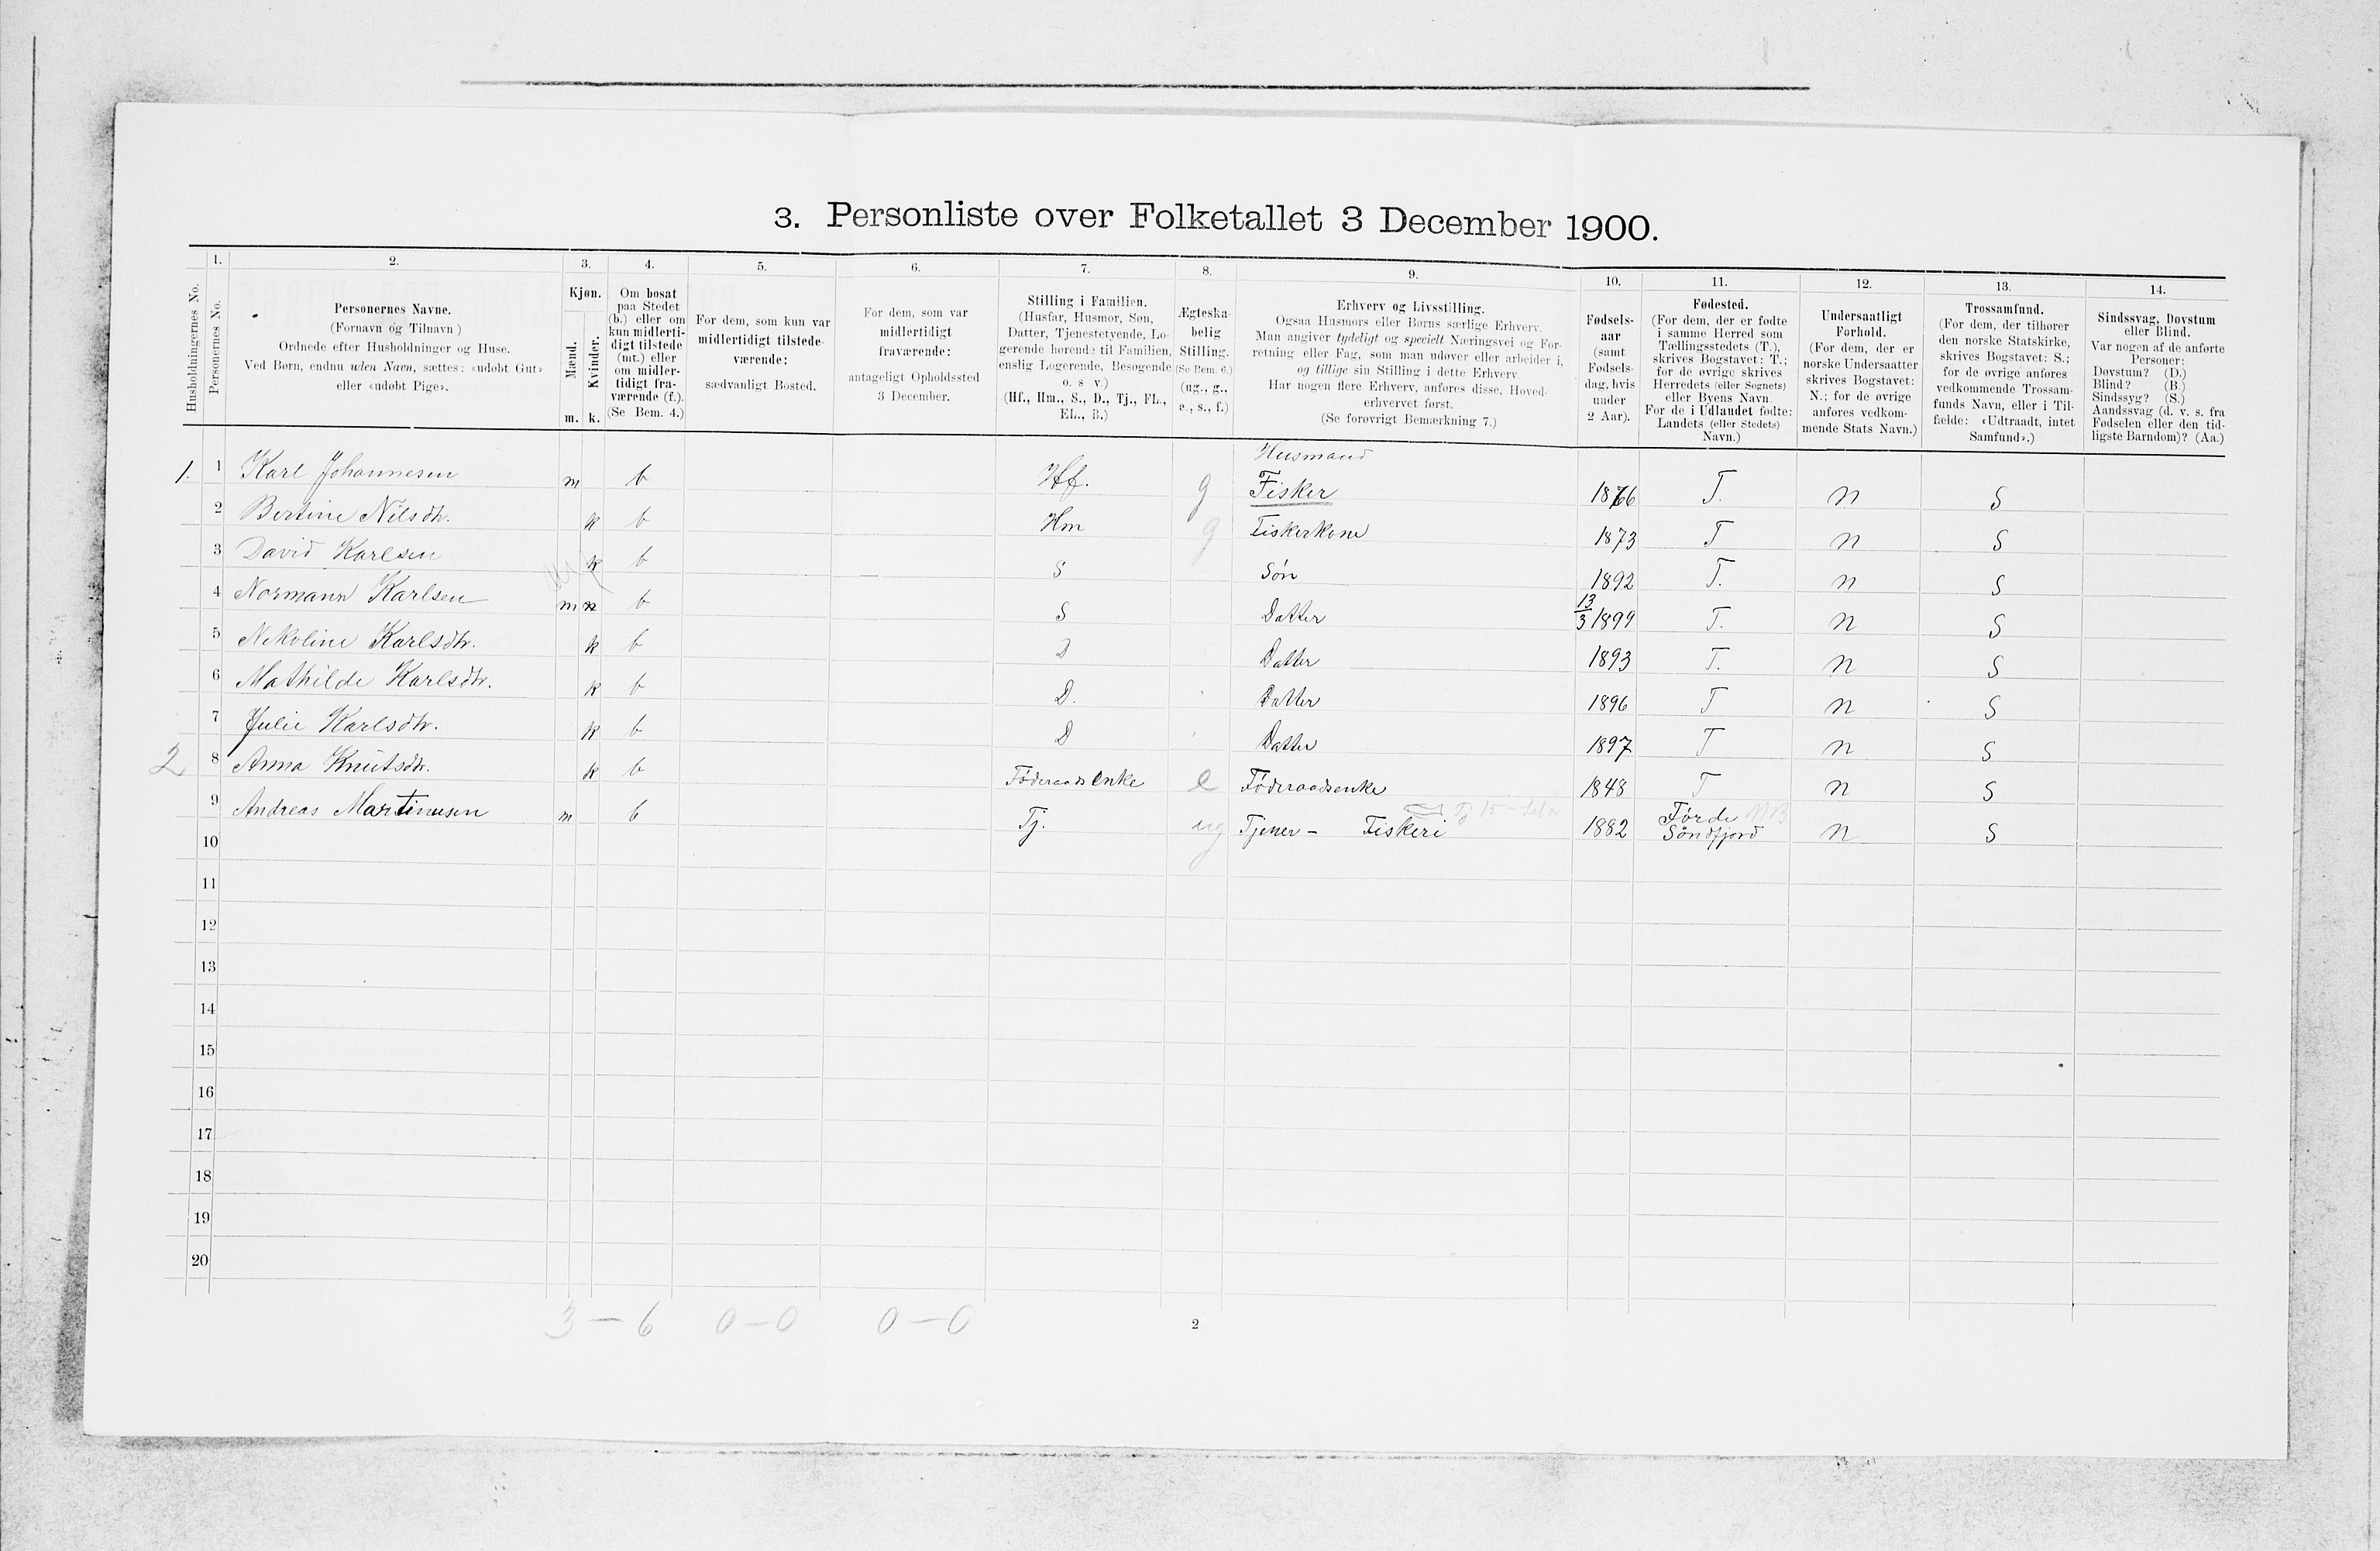 3. Personliste over Folketallet 3 December 1900.
Husholdningernes No.
1. Personernes No.
2. Personernes Navne.
(Fornavn og Tilnavn)
Ordnede efter Husholdninger og Huse.
Ved Børn, endnu uden Navn, sættes: «udøbt Gut»
eller «udøbt Pige».
3. Kjøn.
Mænd. m.
Kvinder. k.
4. Om bosat
paa Stedet
(b.) eller om
kun midlerti-
digt tilstede
(mt.) eller
om midler-
tidigt fra-
værende (f.).
(Se Bem. 4.)
5. For dem, som kun var
midlertidigt tilstede-
værende:
sædvanligt Bosted.
6. For dem, som var
midlertidigt
fraværende:
antageligt Opholdssted
3 December.
7. Stilling i Familien.
(Husfar, Husmor, Søn,
Datter, Tjenestetyende, Lo-
gerende hørende til Familien,
enslig Logerende, Besøgende
o. s v.)
(Hf., Hm., S., D., Tj., FL.,
EL., B.)
8. Ægteska-
belig
Stilling.
(Se Bem. 6.)
(ug., g.,
e., s., f.)
9. Erhverv og Livsstilling.
Ogsaa Husmors eller Børns særlige Erhverv.
Man angiver tydeligt og specielt Næringsvei og For-
retning eller Fag, som man udøver eller arbeider i,
og tillige sin Stilling i dette Erhverv
Har nogen flere Erhverv, anføres disse, Hoved-
erhvervet først.
(Se forøvrigt Bemærkning 7.)
10. Fødsels-
aar
(samt
Fødsels-
dag, hvis
under
2 Aar).
11. Fødested.
(For dem, der er fødte
i samme Herred som
Tællingsstedets (T.),
skrives Bogstavet: T.;
for de øvrige skrives
Herredets (eller Sognets)
eller Byens Navn
For de i Udlandet fødte:
Landets (eller Stedets)
Navn.)
12. Undersaatligt
Forhold.
(For dem, der er
norske Undersaatter
skrives Bogstavet:
N.; for de øvrige
anføres vedkom-
mende Stats Navn.)
13. Trossamfund.
(For dem, der tilhører
den norske Statskirke,
skrives Bogstavet: S.;
for de øvrige anføres
vedkommende Trossam-
funds Navn, eller i Til-
fælde: «Udtraadt, intet
Samfund».)
14. Sindssvag, Døvstum
eller Blind.
Var nogen af de anførte
Personer:
Døvstum? (D.)
Blind? (B.)
Sindssyg? (S.)
Aandssvag (d. v. s. fra
Fødselen eller den tid-
ligste Barndom)? (Aa.)
Husmand
1. 1 Karl Johannesen m b Hf. g Fisker 1876 T. N S
2 Bertine Nilsdtr. k b Hm g Fiskerkone 1873 T N S
3 David Karlsen k b S Søn 1892 T. N S
4 Normann Karlsen m b S Datter 13/3 1899 T. N S
5 Nikoline Karlsdtr. k b D Datter 1893 T. N S
6 Mathilde Karlsdtr. k b D. Datter 1896 T N S
7 Julie Karlsdtr. k b D Datter 1897 T N S
2 8 Anna Knutsdtr. k b Føderaadsenke e Føderaadsenke 1848 T N S
9 Andreas Martinusen m b Tj. ug Tjener - Fiskeri 1882 Førde Søndfjord N S
10
11
12
13
14
15
16
17
18
19
20
3 - 6 0 - 0 0 - 0
2